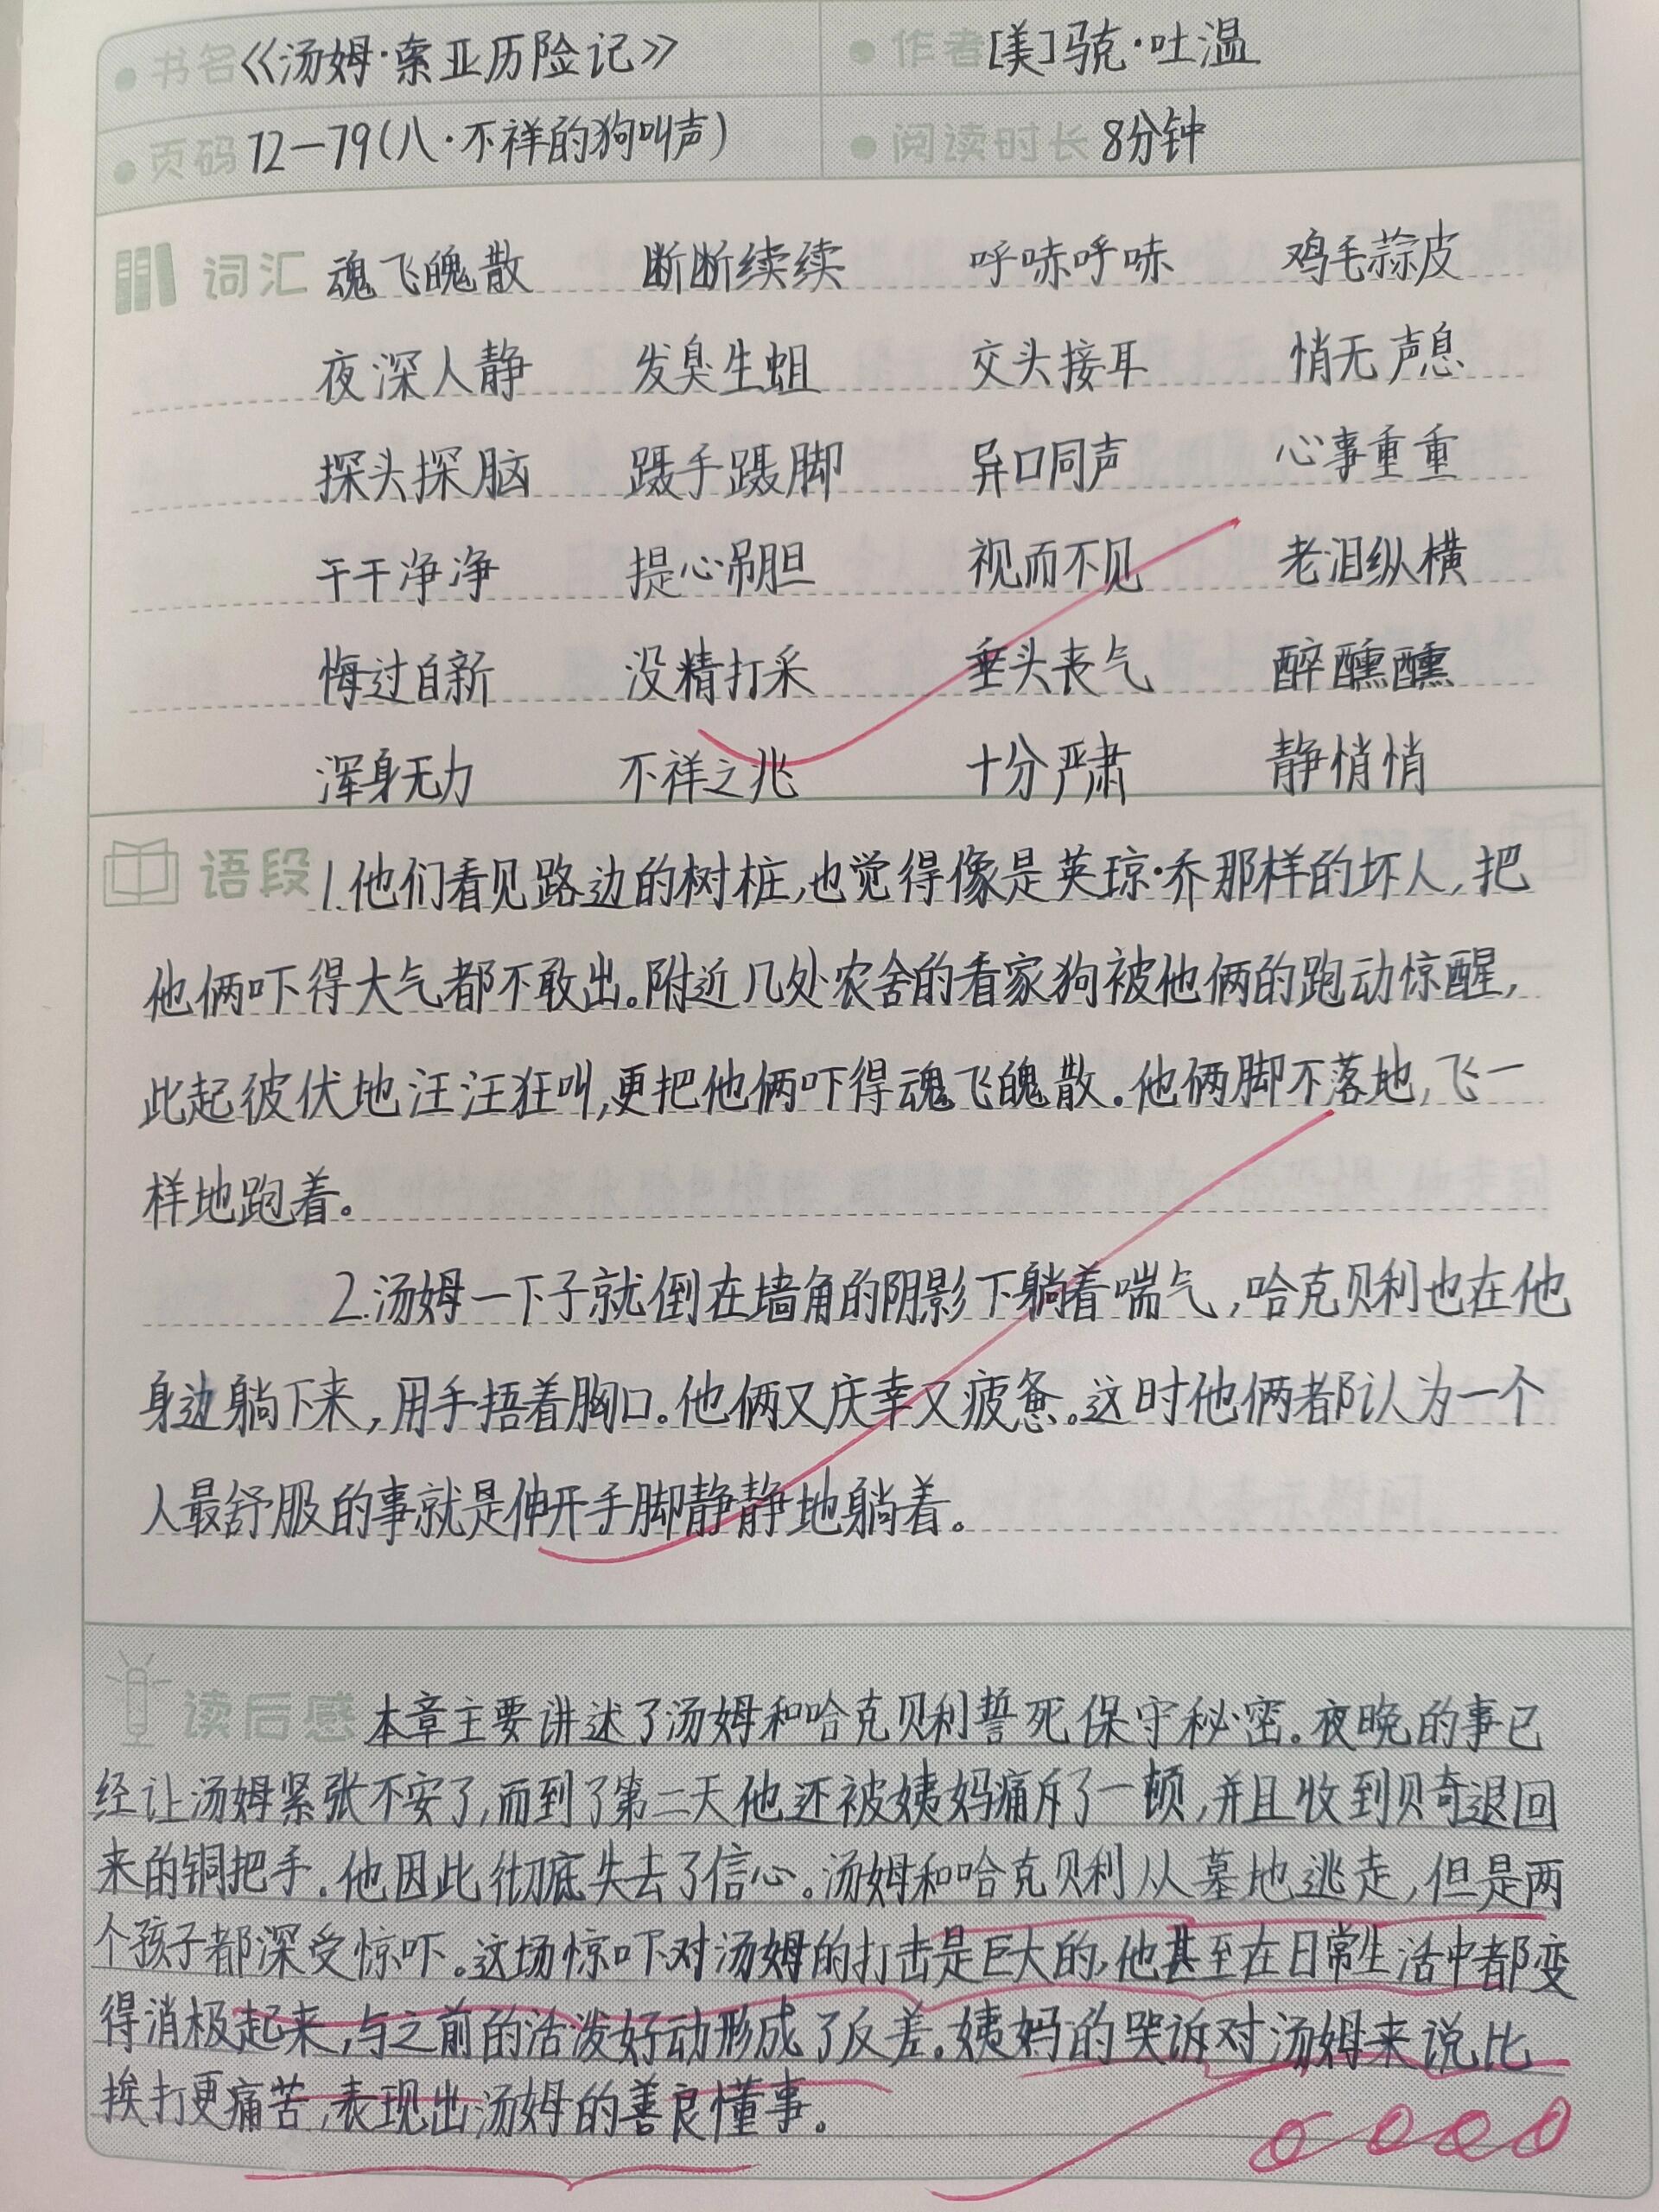 书名《汤姆·索亚历险记》 作者[美]马克·吐温
页码 72—79(八·不祥的狗叫声) 阅读时长 8分钟
词汇 魂飞魄散 断断续续 呼哧呼哧 鸡毛蒜皮
夜深人静 发臭生蛆 交头接耳 悄无声息
探头探脑 蹑手蹑脚 异口同声 心事重重
干干净净 提心吊胆 视而不见 老泪纵横
悔过自新 没精打采 垂头丧气 醉醺醺
浑身无力 不祥之兆 十分严肃 静悄悄
语段 1.他们看见路边的树桩,也觉得像是英琼·乔那样的坏人,把
他俩吓得大气都不敢出。附近几处农舍的看家狗被他俩的跑动惊醒,
此起彼伏地汪汪狂叫,更把他俩吓得魂飞魄散.他俩脚不落地,飞一
样地跑着。
2.汤姆一下子就倒在墙角的阴影下躺着喘气,哈克贝利也在他
身边躺下来,用手捂着胸口。他俩又庆幸又疲惫。这时他俩都认为一个
人最舒服的事就是伸开手脚静静地躺着。
读后感 本章主要讲述了汤姆和哈克贝利誓死保守秘密。夜晚的事已
经让汤姆紧张不安了,而到了第二天他还被姨妈痛斥了一顿,并且收到贝奇退回
来的铜把手.他因此彻底失去了信心。汤姆和哈克贝利从墓地逃走,但是两
个孩子都深受惊吓。这场惊吓对汤姆的打击是巨大的,他甚至在日常生活中都变
得消极起来,与之前的活泼好动形成了反差。姨妈的哭诉对汤姆来说比
挨打更痛苦,表现出汤姆的善良懂事。